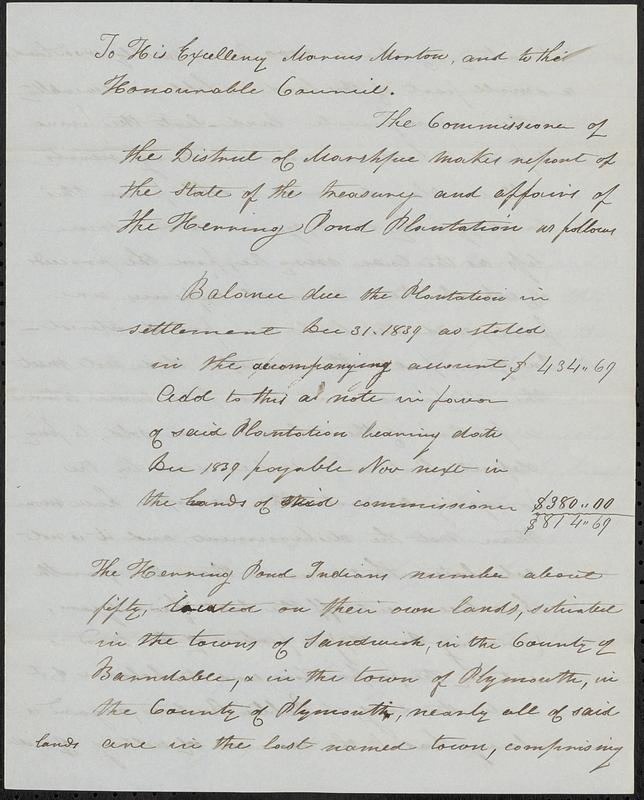 To His Excellency Marcus Morton, and to the
Honourable Council.
The Commissioner of
the District of Marshpee makes report of
the state of the treasury and affairs of
the Herring Pond Plantation as follows
Balance due the Plantation in
settlement Dec 31. 1839 as stated
in the accompanying account $ 434..69
Add to this a note in favor
of said Plantation bearing date
Dec 1839 payable Nov next in
the hands of said commissioner $380..00
$814..69
The Herring Pond Indians number about
fifty, located on their own lands, situated
in the towns of Sandwich, in the County of
Barnstable, & in the town of Plymouth, in
the County of Plymouth, nearly all of said
lands are in the last named town, comprising